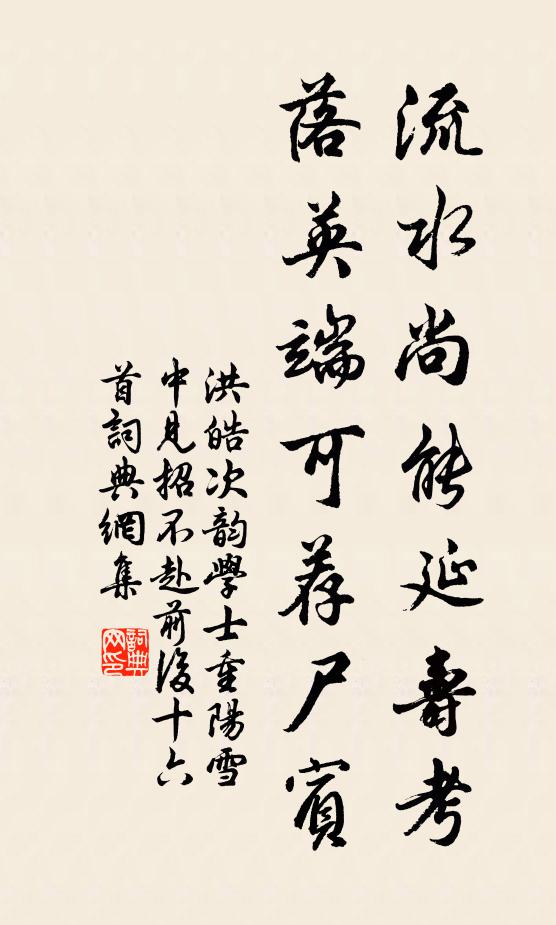 流水尚能延壽考
落英端可荐尸賓
洪皓次韵學士重陽雪
中見招不赴前後十六
首詞典網集
詞典
网印